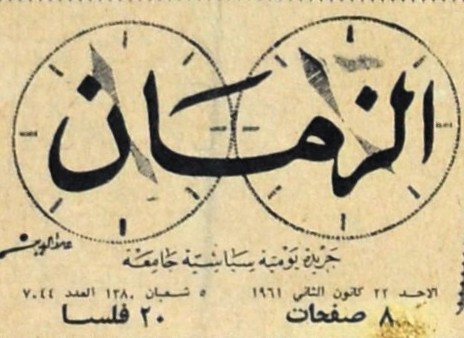 الزمان
جريدة يومية سياسية جامعة
الاحد ٢٢ كانون الثاني ١٩٦١ ٥ شعبان ١٣٨٠ العدد ٧٠٤٤
٨ صفحات ٢٠ فلسا